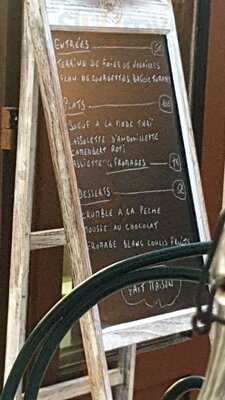 ENTRÉES
TERRINE DE FOIES DE VOLAILLES
FLAN DE COURGETTES
PLATS
BOEUF À LA MODE THAÏ
CASSOLETTE D'ANDOUILLETTE
CAMEMBERT ROTI
ASSIETTE FROMAGES
DESSERTS
CRUMBLE A LA PECHE
MOUSSE AU CHOCOLAT
FROMAGE BLANC COULIS FRUITS
FAIT MAISON